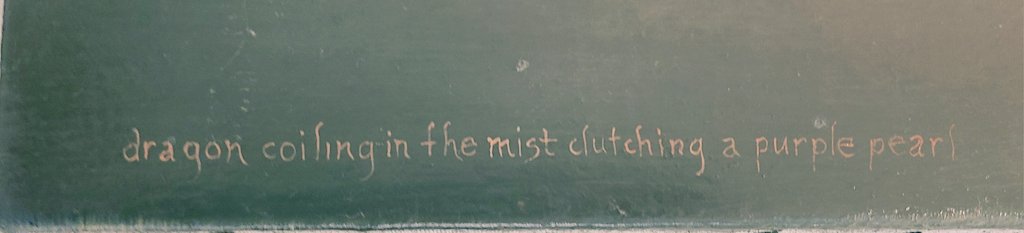 dragon coiling in the mist clutching a purple pearl